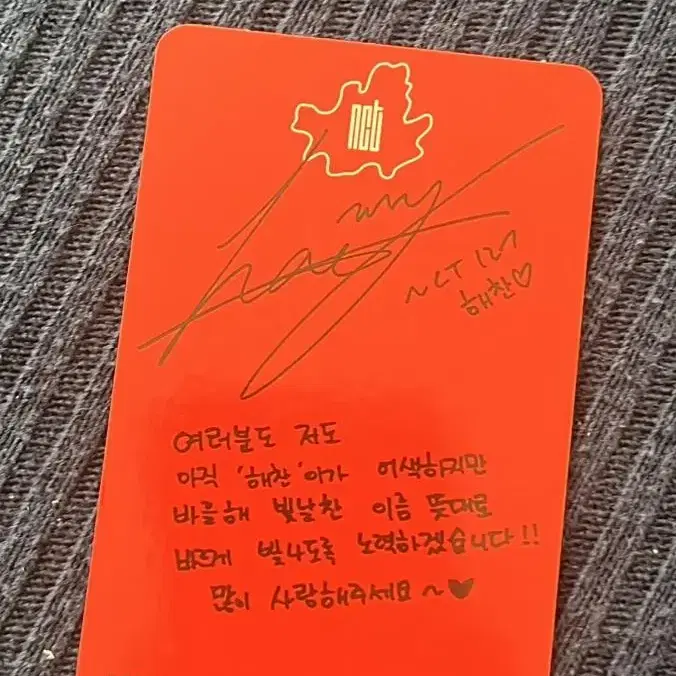 nct
NCT 127
해찬♡
여러분도 저도
아직 '해찬'이가 어색하지만
바를해 빛날찬 이름 뜻대로
바르게 빛나도록 노력하겠습니다!!
많이 사랑해주세요~♥